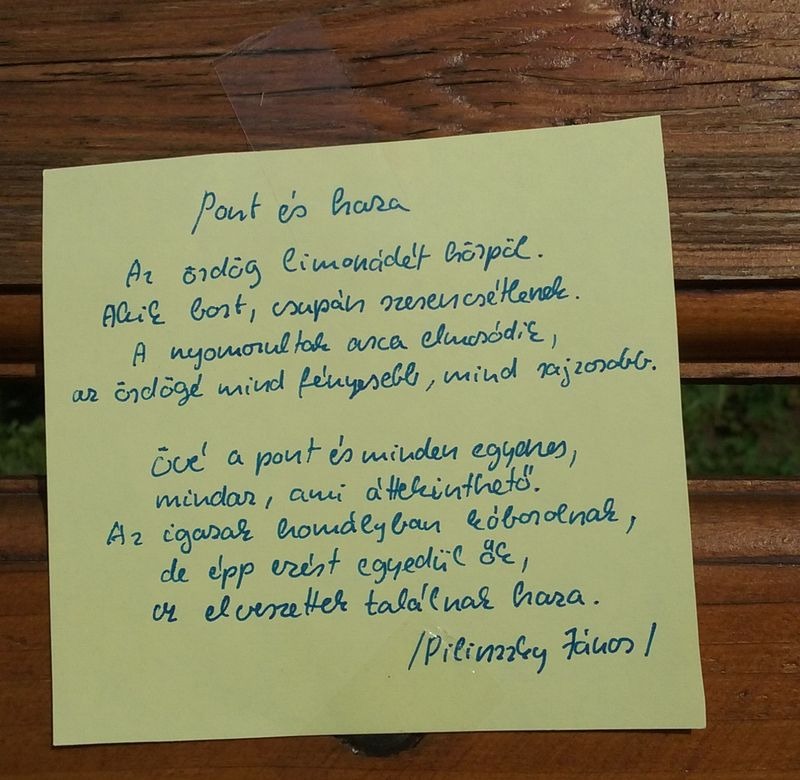 Pont és haza
Az ördög limonádét hörpöl.
Akik bort, csupán szerencsétlenek.
A nyomorultak arca elmosódik,
az ördögé mind fényesebb, mind rajzosabb.
Övé a pont és minden egyenes,
mindaz, ami áttekinthető.
Az igazak homályban kóborolnak,
de épp ezért egyedül ők,
az elveszettek találnak haza.
/Pilinszky János/